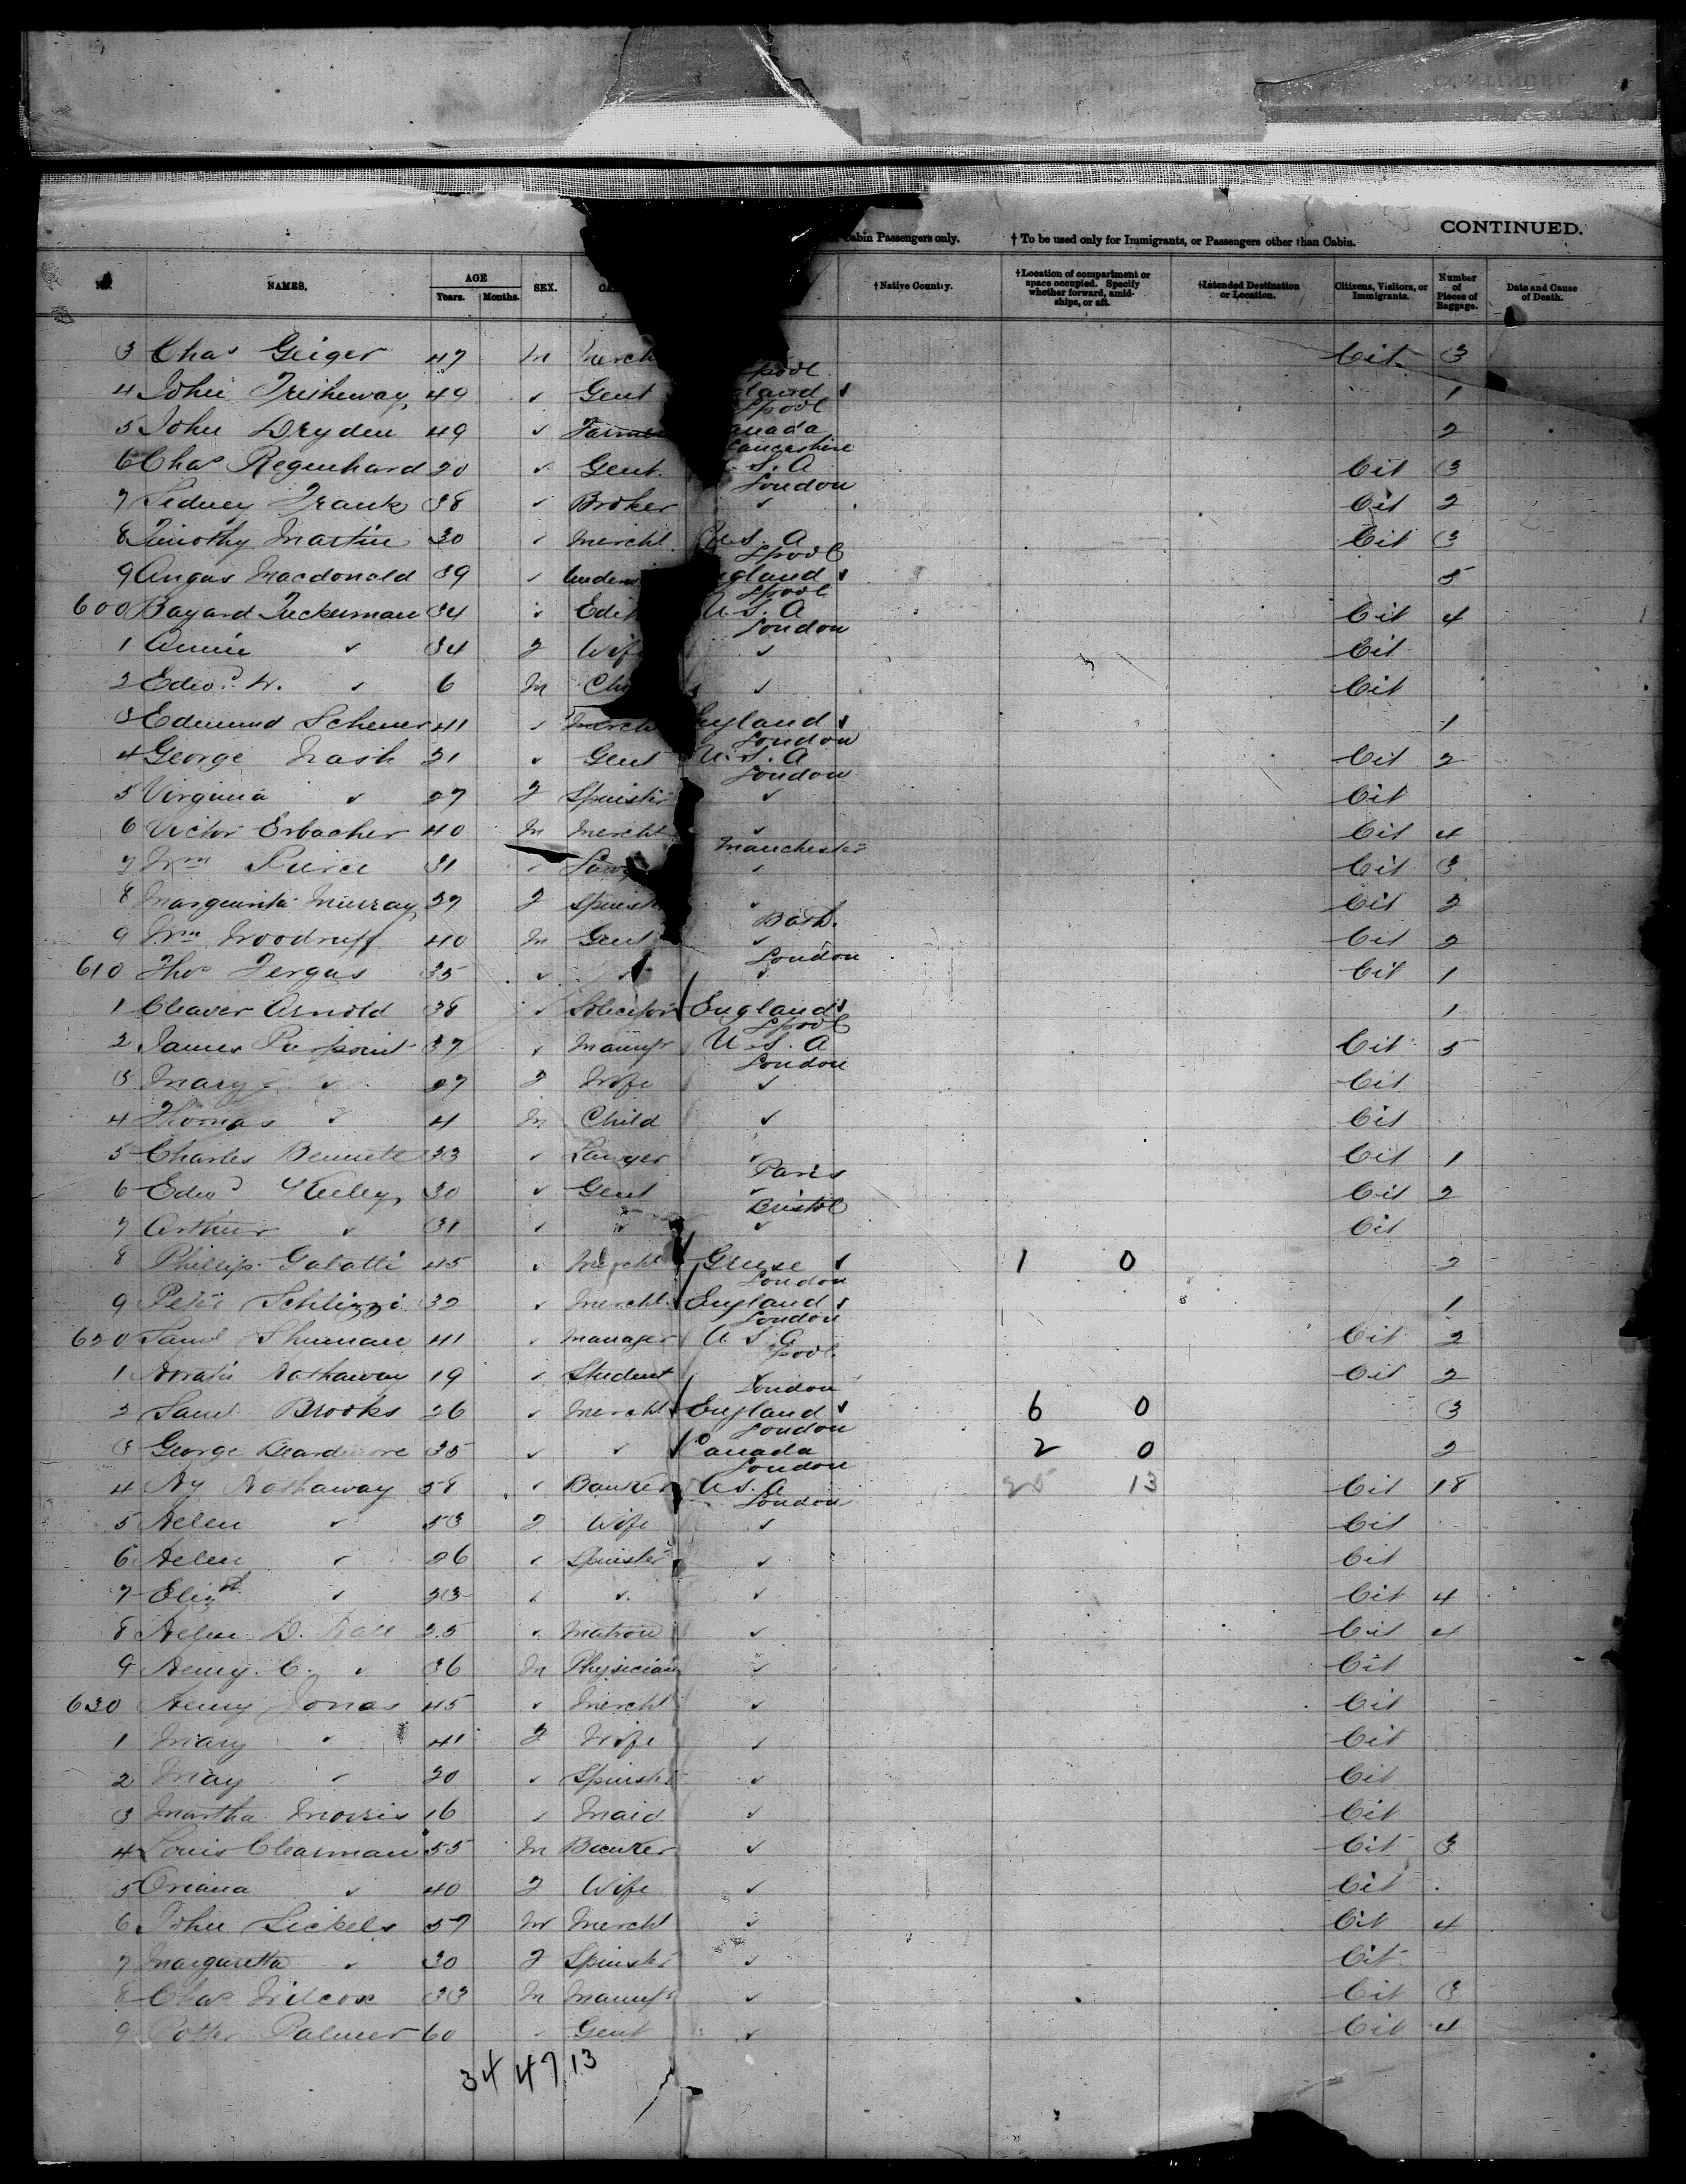 CONTINUED.
Cabin Passengers only. † To be used only for Immigrants, or Passengers other than Cabin.
No. NAMES. AGE Years. Months. SEX. †Native Country. †Location of compartment or space occupied. Specify whether forward, amidships, or aft. †Intended Destination or Location. Citizens, Visitors, or Immigrants. Number of Pieces of Baggage. Date and Cause of Death.
3 Chas Geiger 47 M Merch Cit 3
pool
4 John 49 ✓ Gent gland ✓ 1
Spool
5 John Dryden 49 ✓ Farmer anada 2
Lancashire
6 Chas Regenhard 20 ✓ Gent. S. A Cit 3
London
7 Sidney Frank 38 ✓ Broker ✓ Cit 2
8 Timothy Martin 30 ✓ Mercht U.S. A Cit 3
Lpool
9 Angus Macdonald 39 ✓ gland ✓ 5
Lpool
600 Bayard Tuckerman 34 ✓ Edit U.S. A Cit 4
London
1 Annie ✓ 34 F Wife ✓ Cit
2 Edwd W. ✓ 6 M Chi ✓ Cit
3 Edmund Scheuer 41 ✓ Merch England ✓ 1
London
4 George Nash 21 ✓ Gent U.S. A Cit 2
London
5 Virginia ✓ 27 F Spinster ✓ Cit
6 Victor Erbacher 40 M Mercht ✓ Cit 4
Manchester
7 Wm Pierce 31 ✓ Lawy ✓ Cit 3
8 Marguerita Murray 27 F Spinst ✓ Cit 2
Bath.
9 Wm Woodruff 40 M Gent ✓ Cit 2
London
610 Thos Fergus 35 ✓ ✓ ✓ Cit 1
1 Cleaver Arnold 38 ✓ Solicitor England ✓ 1
Lpool
2 James Pierpoint 37 ✓ Manufr U.S. A Cit 5
London
3 Mary ✓ 27 F Wife ✓ Cit
4 Thomas ✓ 4 M Child ✓ Cit
5 Charles Bennett 33 ✓ Lawyer ✓ Cit 1
Paris
6 Edwd Keeley 30 ✓ Gent ✓ Cit 2
Bristol
7 Arthur ✓ 31 ✓ ✓ ✓ Cit
8 Phillip Galatti 45 ✓ Mercht Greese ✓ 1 0 2
London
9 Peter Schlizzi 32 ✓ Mercht England ✓ 1
London
620 Saml Shuman 41 ✓ Manager U S. A Cit 2
pool
1 Horatio Hathaway 19 ✓ Student Cit 2
London
2 Saml Brooks 26 ✓ Mercht England ✓ 6 0 3
London
3 George Beardmore 35 ✓ ✓ Canada 2 0 2
London
4 Hy Hathaway 58 ✓ Banker U.S. A 25 13 Cit 18
London
5 Helen ✓ 53 F Wife ✓ Cit
6 Helen ✓ 26 ✓ Spinster ✓ Cit
7 Elizth ✓ 23 ✓ ✓ ✓ Cit 4
8 Helen D. 25 ✓ Matron ✓ Cit 4
9 Henry. C. ✓ 36 M Physician ✓ Cit
630 Henry Jonas 45 ✓ Mercht ✓ Cit
1 Mary ✓ 41 F Wife ✓ Cit
2 May ✓ 20 ✓ Spinster ✓ Cit
3 Martha Morris 16 ✓ Maid ✓ Cit
4 Louis Clearman 55 M Banker ✓ Cit 3
5 Oriana ✓ 40 F Wife ✓ Cit
6 John Sickels 57 M Mercht ✓ Cit 4
7 Margaretta ✓ 30 F Spinster ✓ Cit
8 Chas Wilcox 33 M Manufr ✓ Cit 3
9 Potter Palmer 60 ✓ Gent ✓ Cit 4
34 47 13